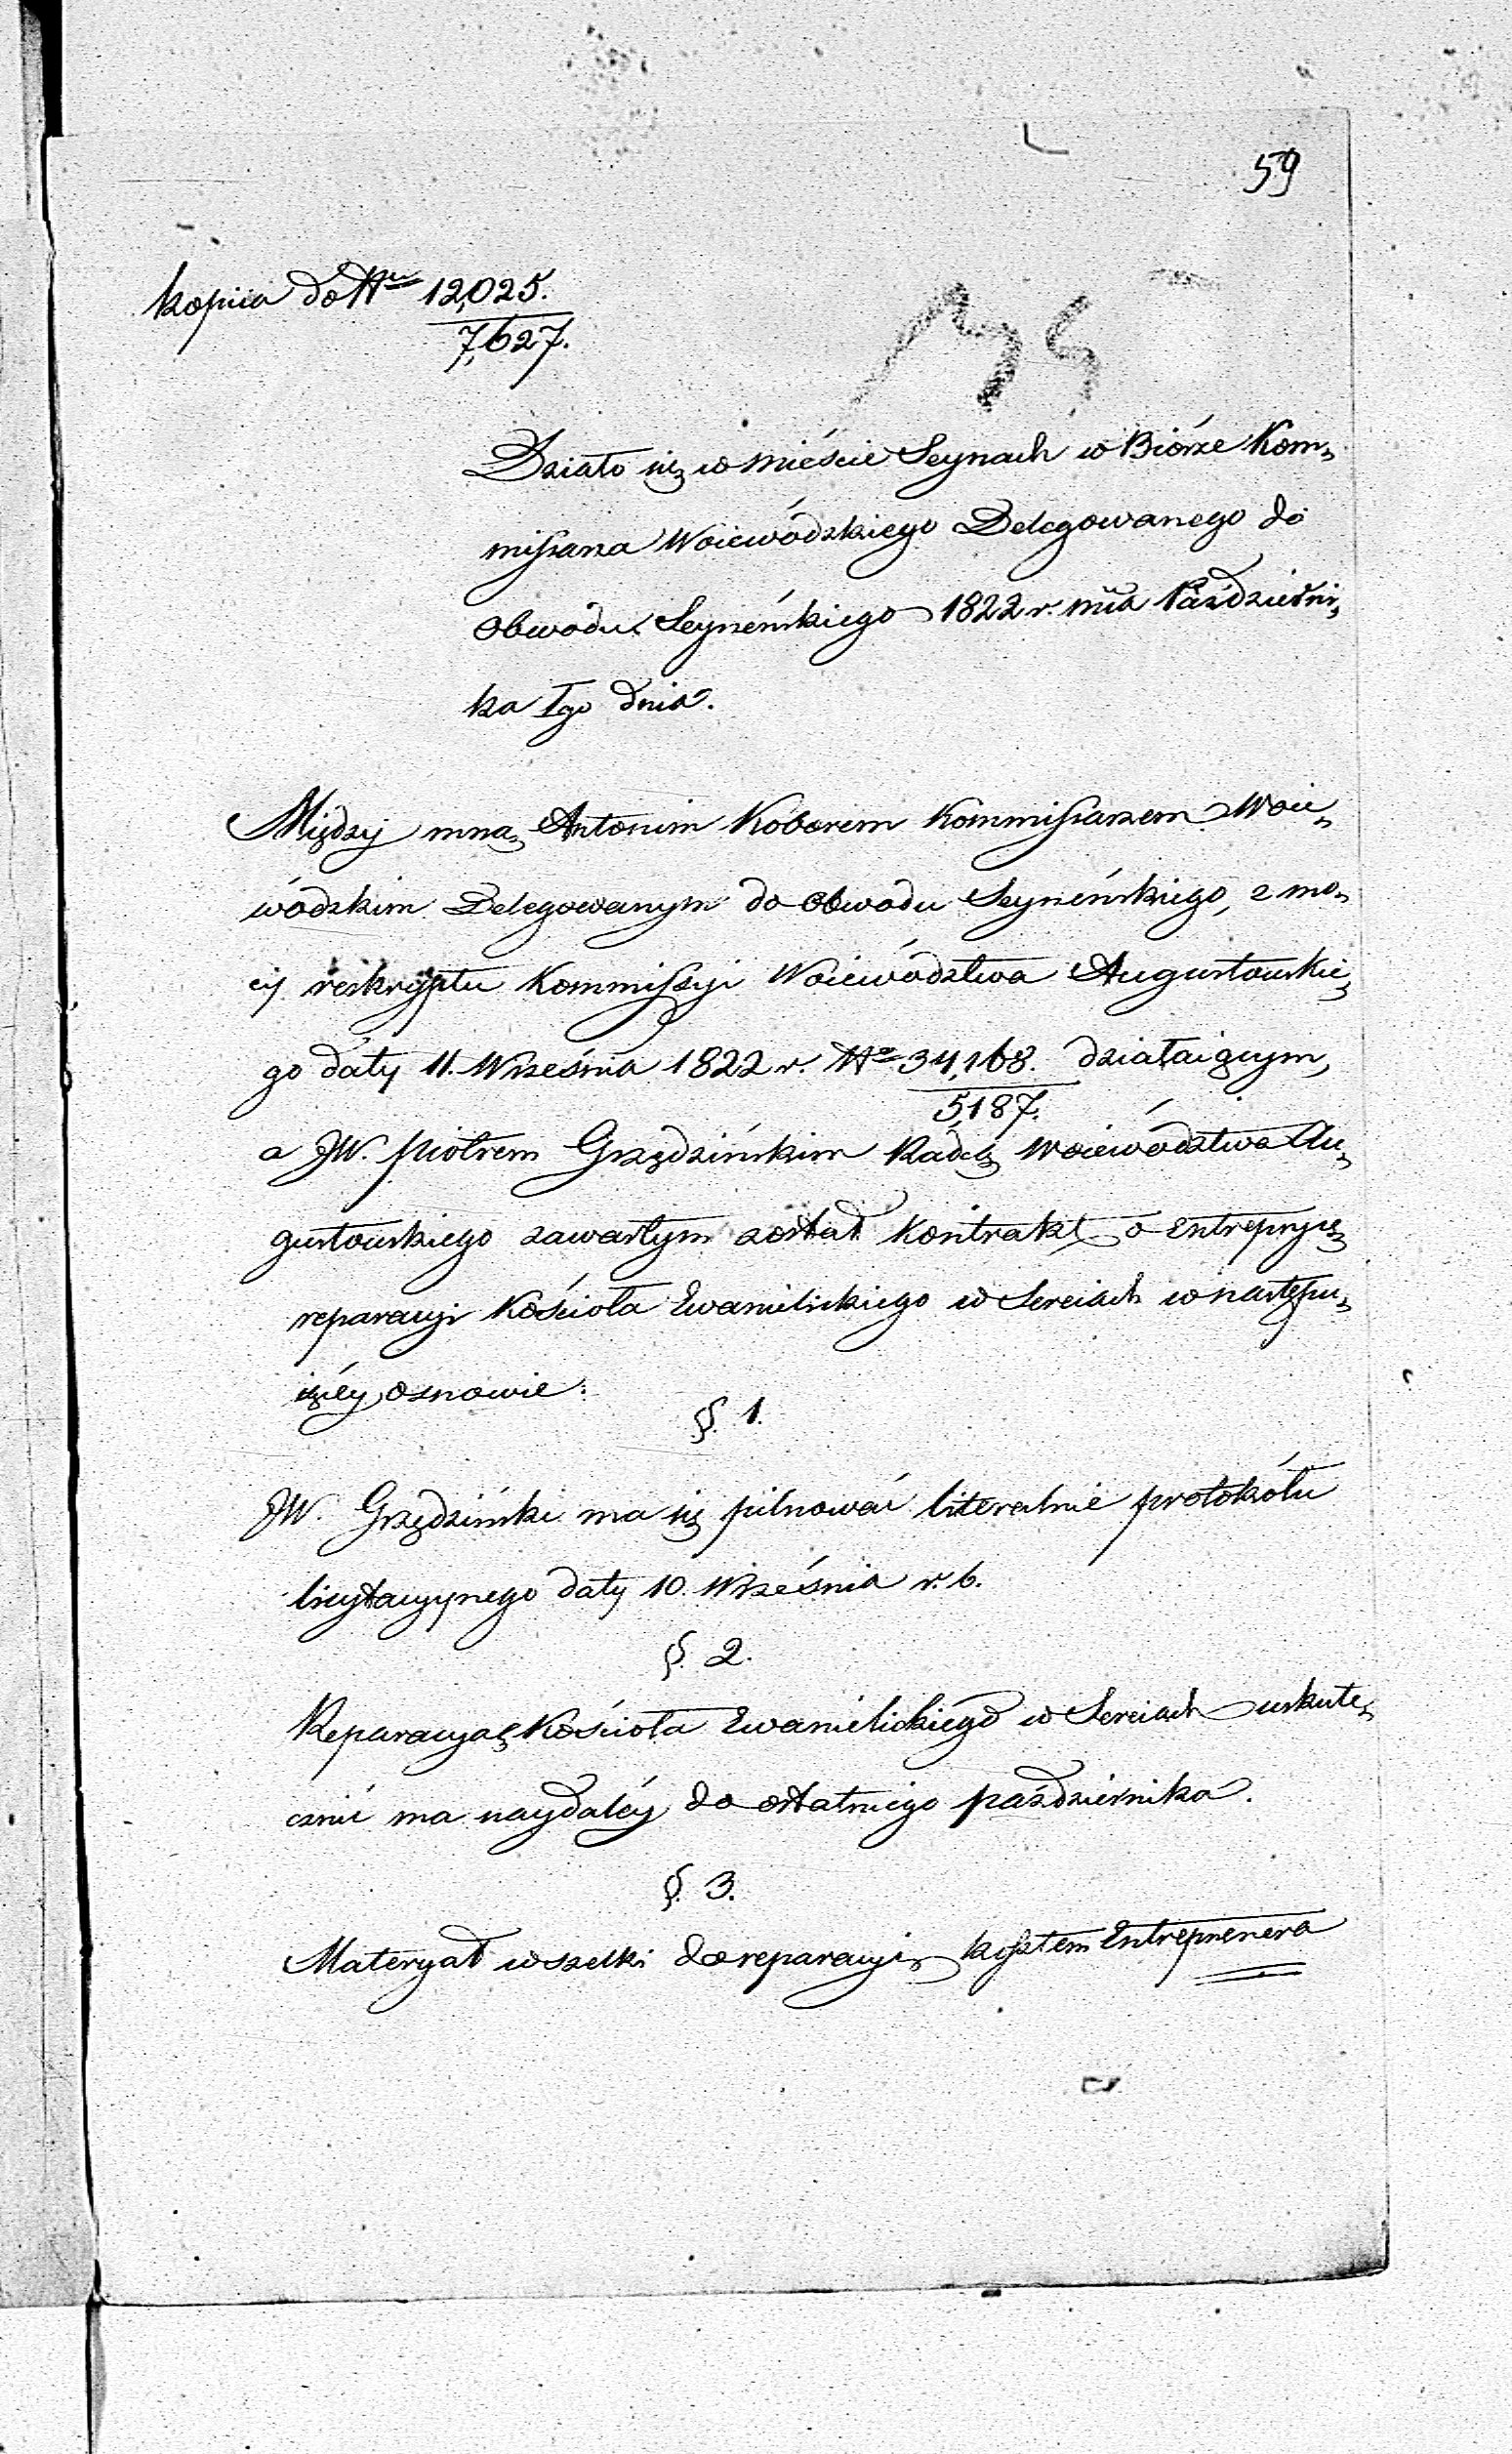 59
kopiia do Nru 12,025.
7,627.
Działo się w mieście Seynach w Biórze Kom„
missarza Woiewódzkiego Delegowanego do
Obwodu Seyneńskiego 1822 r. mca Październi„
ka 1go dnia.
Między mną Antonim Koborem Kommissarzem Woie„
wódzkim Delegowanym do Obwodu Seyneńskiego, z mo„
cy reskryptu Kommissyi Woiewództwa Augustowskie„
go daty 11. Września 1822 r. No 34,168. działaiącym,
5187.
a JW. Piotrem Grzędzińskim Radcą Woiewództwa Au„
gustowskiego zawartym został Kontrakt o Entrepryzę
reparacyi Kościoła Ewanielickiego w Sereiach w następu„
iącéy osnowie:
§. 1.
JW. Grzędziński ma się pilnować literalnie protokółu
licytacyynego daty 10. Września r. b.
§. 2.
Reparacyą Kościoła Ewanielickiego w Sereiach uskute„
cznić ma naydaléy do ostatniego października.
§. 3.
Materyał wszelki do reparacyi kosztem Entreprenera